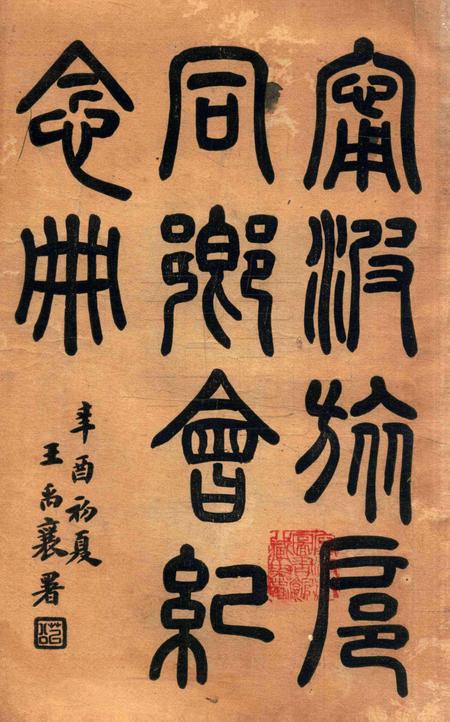 甯波旅扈
同鄉會紀
念册
辛酉初夏
王禹襄署